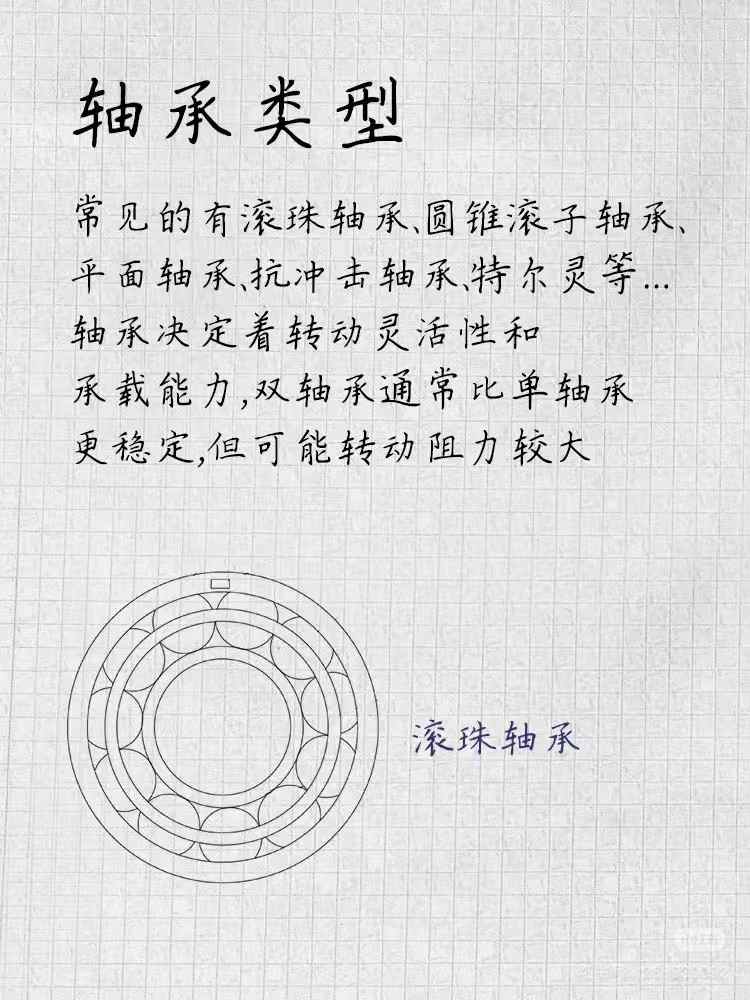 轴承类型
常见的有滚珠轴承、圆锥滚子轴承、
平面轴承、抗冲击轴承、特尔灵等...
轴承决定着转动灵活性和
承载能力,双轴承通常比单轴承
更稳定,但可能转动阻力较大
滚珠轴承